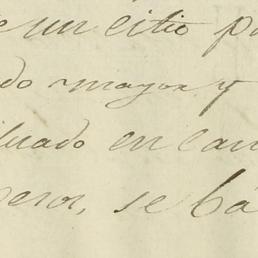 e un citio p
do mayor y
tuado en can
peror, se bá